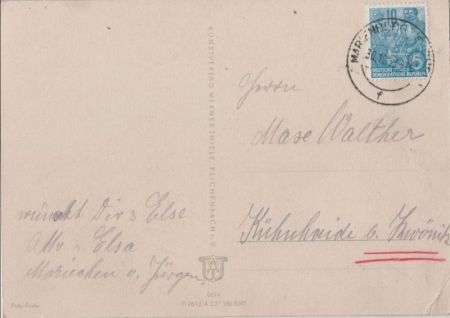 10
DEUTSCHE
DEMOKRATISCHE REPUBLIK
Herrn
Max Walther
Kühnhaide b. Zwönitz
wünscht Dir & Else
Otto & Elsa
Mariechen u. Jürgen
KUNSTVERLAG WERNER THIELE, REICHENBACH i. V.
Foto-Fröhn
9614